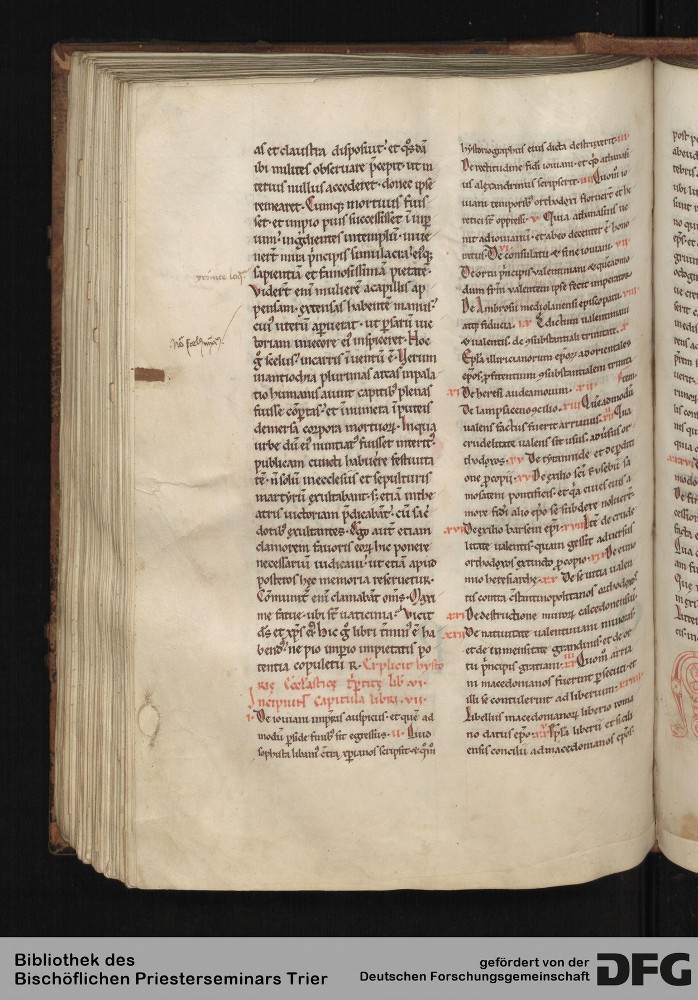 as et claustra disposuit· et q̄sdā
ibi milites observare p̄cepit· ut in
terius nullus accederet· donec ipse
remearet· Cumq; mortuus fuis
set· et impio pius successisset imp̄
ingredientes in templū· inve
nert̄ mira p̄ncipis simulacra· eiꝰq;
sapientiā et famosissimā pietatē·
Vidert̄ eni mulierē a capillis ap
pensam· extensas habentē manus·
cuiꝰ uterū apuerat· ut p̄sarū uic
toriam in iecore ei inspiceret· Hoc
g̊ scelus in carris inuentū ē· Verum
in antiochia plurimas arcas in pala
tio humanis aiunt capitibꝰ plenas
fuisse cōptas· et in numera i puteis
demersa corpora mortuoꝝ· In qua
urbe dū ei nuntiatꝰ fuisset interitꝰ·
publicam cuncti habuere festiuita
tē· n̄ solū in ecclesiis et sepulturis
martyrū exultabant· s; etiā in the
atris uictoriam p̄dicabāt· cū sac̄
dotibꝰ exultantes· Ego autē etiam
clamorem fauoris eoꝝ hic ponere
necessariū iudicaui· ut etiā apud
posteros hec memoria reseruetur·
Cōmunit̄ eni clamabāt om̄s· Maxi
me fatue· ubi st̄ uaticinia· Vicit
d̄s et xp̄s ei· Hic g̊ libri t̄minꝰ ē ha
bendꝰ· ne pio impio impietatis po
tentia copuletur· Explicit hysto
rie Ecclastice tptite lib· vi·
Incipiunt Capitula libri· vii·
i· De iouiani imp̄ris auspicus· et que ad
modū p̄side finibꝰ sit egressus· ii· Quid
sophista libaniꝰ xp̄ianos scripsit· & qm̄
hystoriographis eius dicta destruxerit· iii·
De rectitudine fidi iouiani· et qd athanasi
us alexandrinus scripserit· iiii· Quom̄ io
uiani temporibꝰ orthodoxi floruert̄ et he
retici st̄ oppressi· v· Quia athanasius ue
nit ad iouianū· et ab eo decent̄ ē hono
ratus· vi· De consulatu & fine iouiani· vii·
De ortu p̄ncipis ualentiniani· & queadmo
dum frm̄ ualentem ipse fecit imperatorē
De Ambrosii mediolanensi episcopatu· viii·
atq; fiducia· ix· Edictum ualentiniani
& ualentis· de ꝯsubstantiali trinitate· x·
Epl̄a illiricianorum epoꝝ ad orientales
epos· ꝓfitentium ꝯsubstantialem trinita
xi· De heresi audeanorum· xii· tem·
De lampsaceno ꝯcilio· xiii· Queadmodū
ualens factus fuerit arrianus· Qua
crudelitate ualens sit usus· aduersus or
thodoxos· xv· De tyrannide et deperditi
one procopii· De exilio sc̄i & eusebii sa
mosateni pontificis· et qa ciues eius a
more fidi alio epo se subdere noluert̄·
xvi· De exilio barsem epi· xvii· Itē de crude
litate ualentis· quam gessit aduersus
orthodoxos· extincto procopio· De euno
mio heresiarche· xx· De seuitia ualen
tis contra ꝯstantinopolitanos orthodoxos
xxi· De destructione muroꝝ calcedonensiū
xxii· De natiuitate ualentiniani iunioris
et de inmensitate grandinis· et de or
tu p̄ncipis gratiani· Quom̄ arria
ni macedonianos fuerint ꝑsecuti· et
illi se contulerint ad liberium·
Libellus macedonianoꝝ liberio roma
no datus epo· Epl̄a liberii et sicili
ensis concilii ad macedonianos epos·
Bibliothek des
Bischöflichen Priesterseminars Trier
gefördert von der
Deutschen Forschungsgemeinschaft
DFG